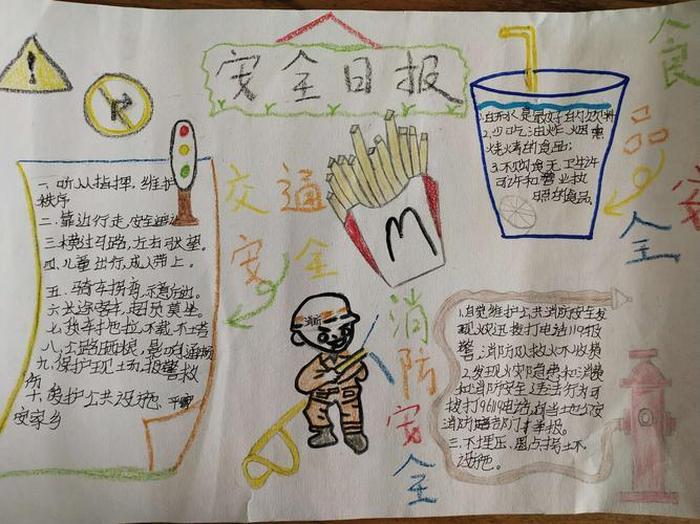 安全日报
交通
安全
一、听从指挥，维护
秩序
二、靠边行走，安全
三、横过马路，左右
四、儿童出行，成人带上。
五、骑车拐弯，
六、长途客车，
七、货车拖拉，不载不
八、公路晒粮，影响
九、保护现场，报警救
伤
十、爱护公共设施，平安
安家乡
M
1.白开水是最好的饮料
2.少吃油炸、烟熏
烧烤的食品；
3.不购食无卫生许
可许和营业执
照的食品。
食
品
安
全
消
防
安
全
消防
1.自觉维护公共消防安全发
现火灾迅拨打电话119报
警，消防队救火不收费
2.发现火灾隐患和消费
和消防安全违法行为可
拨打96119电话，向当地公安
消防部门举报。
三、不埋压、圈占
设施。